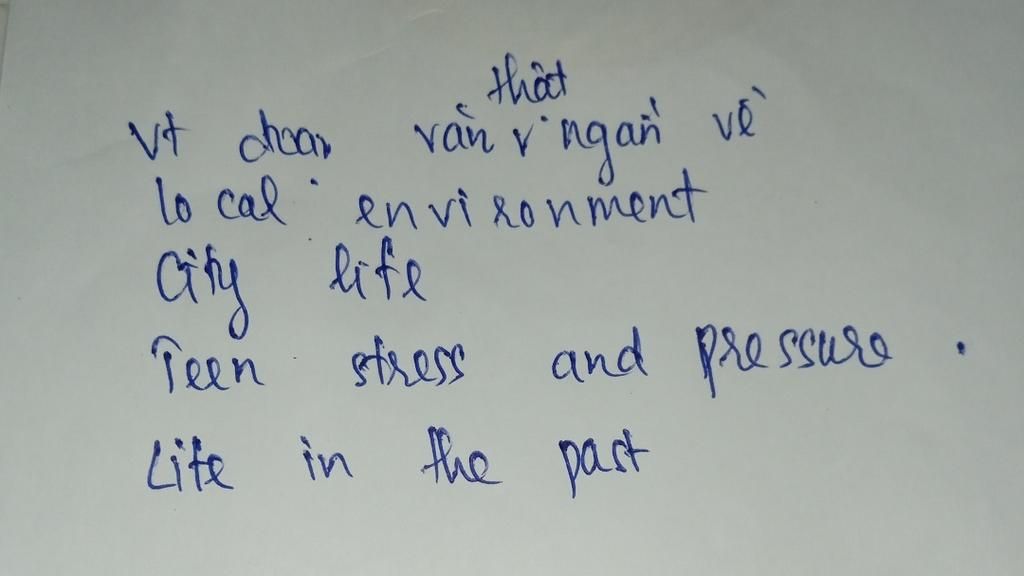 thật
Vt đoạn văn ngắn về
local environment
City life
Teen stress and pressure.
Life in the past